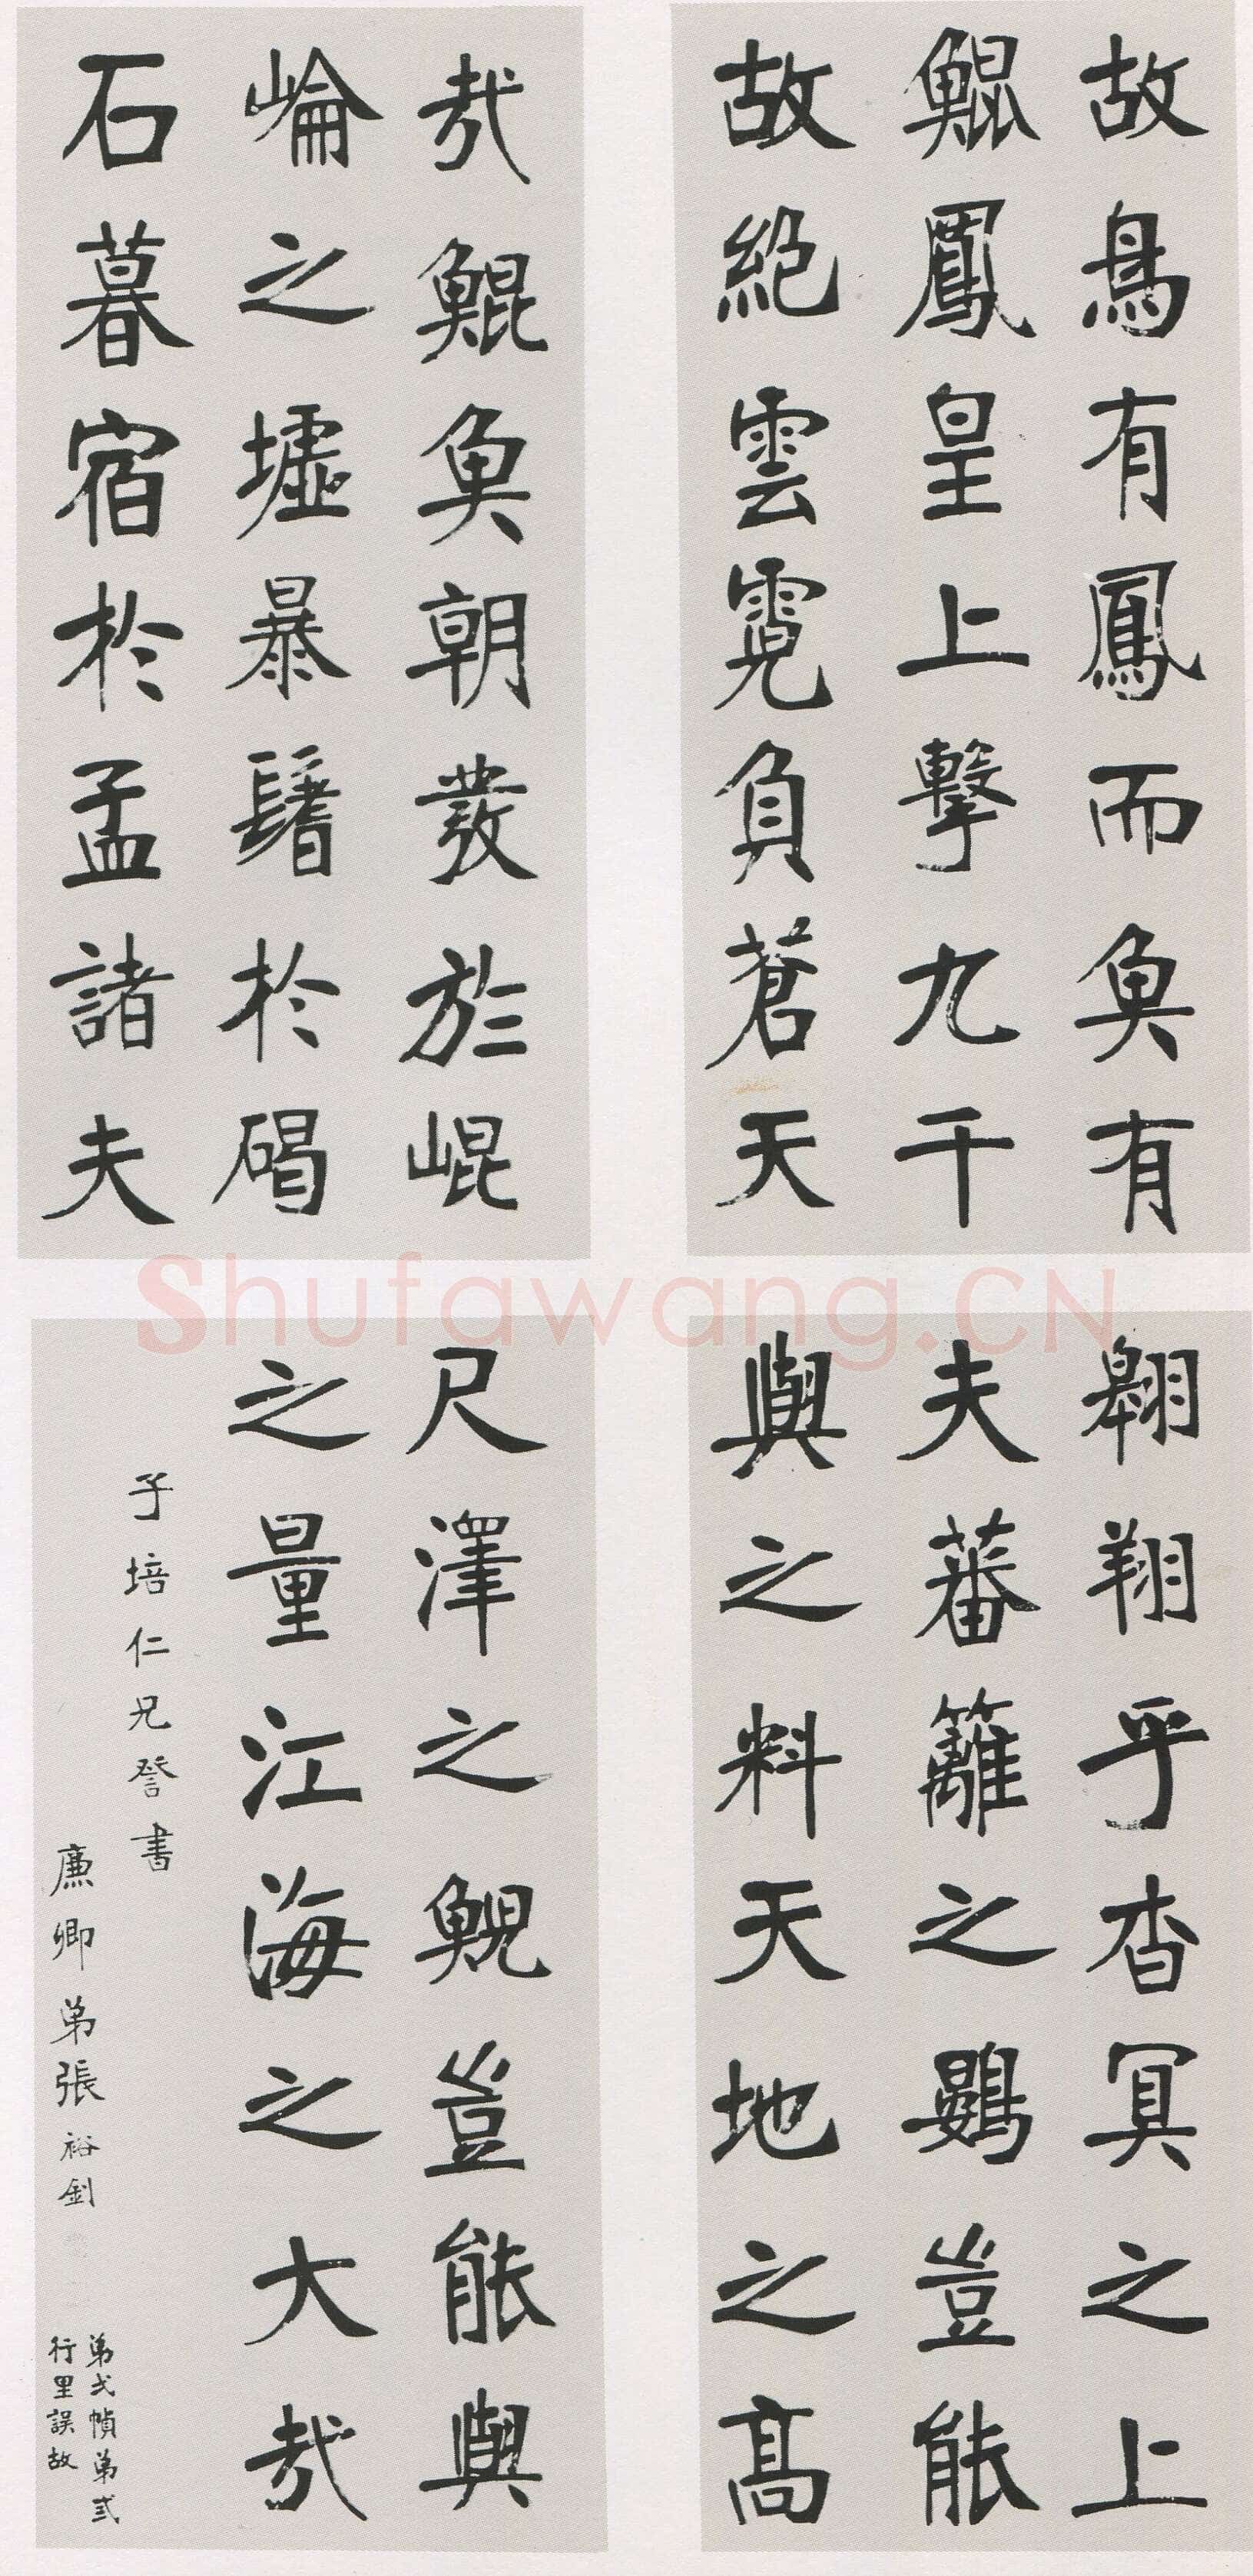 故鳥有鳳而魚有
鯤鳳皇上擊九千
故絕雲霓負蒼天
翱翔乎杳冥之上
夫蕃籬之鷃豈能
與之料天地之高
哉鯤魚朝發於崐
崘之墟暴鬐於碣
石暮宿於孟諸夫
尺澤之鯢豈能與
之量江海之大哉
子培仁兄詧書
廉卿弟張裕釗
弟弌幀弟弍
行里誤故
Shufawang.CN